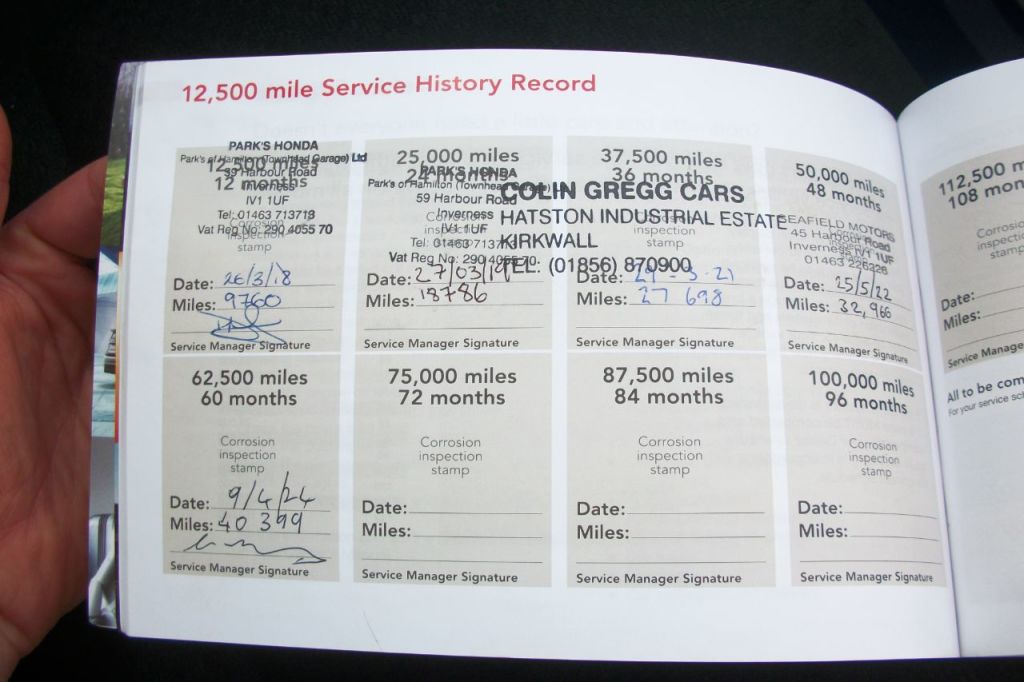 12,500 mile Service History Record
PARK'S HONDA
Park's of Hamilton (Townhead Garage) Ltd
12,500 miles
59 Harbour Road
12 months
Inverness
IV1 1UF
Tel: 01463 713713
Corrosion
Vat Reg No: 290 4055 70
inspection
stamp
Date: 26/3/18
Miles: 9760
Service Manager Signature
25,000 miles
24 months
PARK'S HONDA
Park's of Hamilton (Townhead Garage)
59 Harbour Road
Inverness
Corrosion
IV1 1UF
inspection
Tel: 01463 713713
Vat Reg No: 290 4055 70
Date: 27/03/19
Miles: 18786
Service Manager Signature
37,500 miles
36 months
COLIN GREGG CARS
HATSTON INDUSTRIAL ESTATE
Corrosion
KIRKWALL
stamp
TEL: (01856) 870900
Date: 29-3-21
Miles: 27 698
Service Manager Signature
50,000 miles
48 months
SEAFIELD MOTORS
45 Harbour Road
Inverness IV1 1UF
01463 226226
Date: 25/5/22
Miles: 32,966
Service Manager Signature
62,500 miles
60 months
Corrosion
inspection
stamp
Date: 9/4/24
Miles: 40 399
Service Manager Signature
75,000 miles
72 months
Corrosion
inspection
stamp
Date:
Miles:
Service Manager Signature
87,500 miles
84 months
Corrosion
inspection
stamp
Date:
Miles:
Service Manager Signature
100,000 miles
96 months
Corrosion
inspection
stamp
Date:
Miles:
Service Manager Signature
112,500 m
108 mon
Corrosio
inspecti
stamp
Date:
Miles:
Service Manage
All to be com
For your service sch